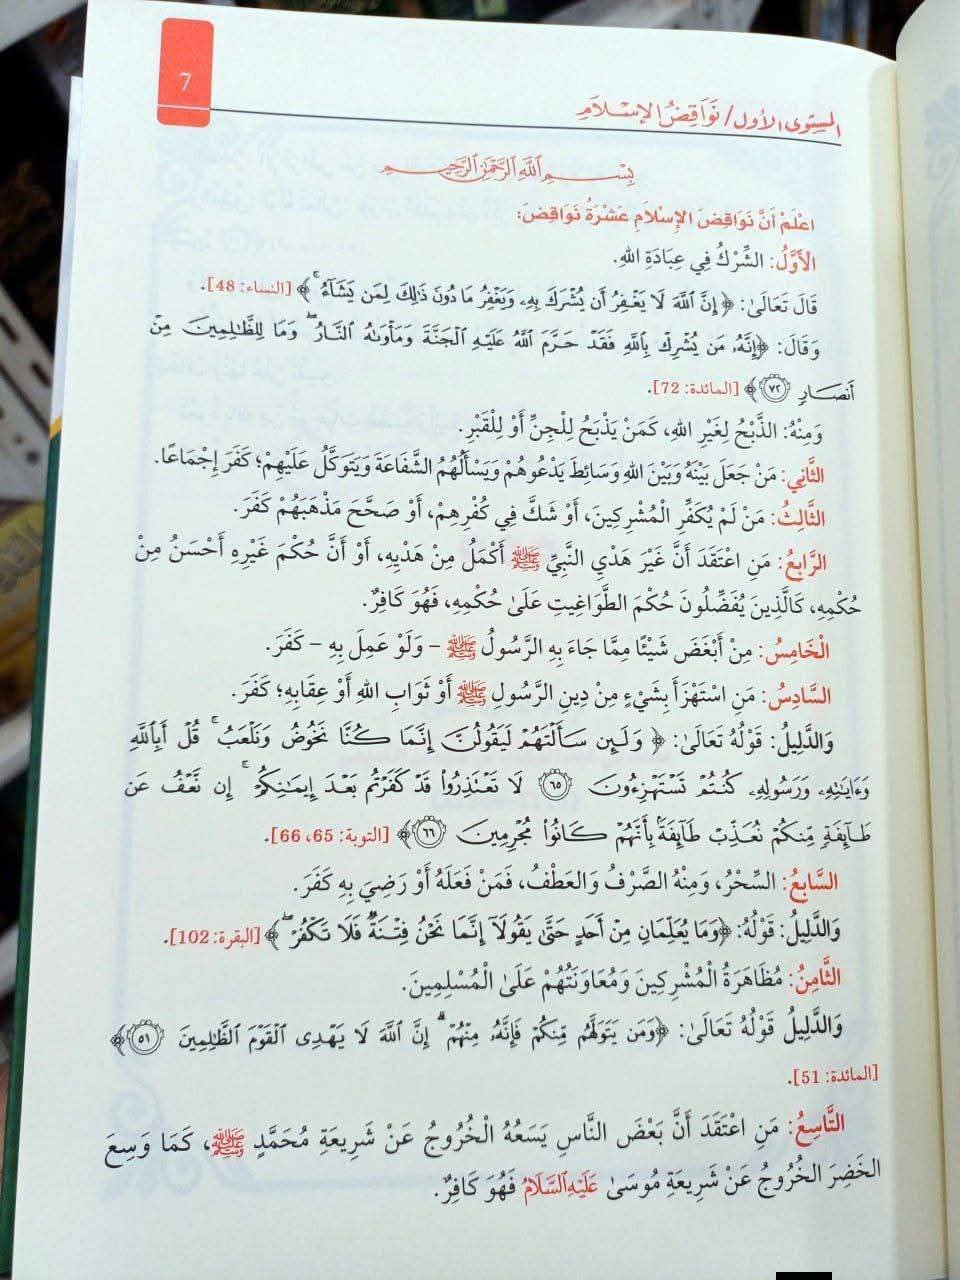 7
المستوى الأول / نَوَاقِضُ الإِسْلَامِ
بِسْمِ اللَّهِ الرَّحْمَنِ الرَّحِيمِ
اعْلَمْ أَنَّ نَوَاقِضَ الإِسْلَامِ عَشَرَةُ نَوَاقِضَ:
الأَوَّلُ: الشِّرْكُ فِي عِبَادَةِ اللهِ.
قَالَ تَعَالَىٰ: ﴿إِنَّ ٱللَّهَ لَا يَغْفِرُ أَن يُشْرَكَ بِهِۦ وَيَغْفِرُ مَا دُونَ ذَٰلِكَ لِمَن يَشَآءُۚ﴾ [النساء: 48].
وَقَالَ: ﴿إِنَّهُۥ مَن يُشْرِكْ بِٱللَّهِ فَقَدْ حَرَّمَ ٱللَّهُ عَلَيْهِ ٱلْجَنَّةَ وَمَأْوَىٰهُ ٱلنَّارُۖ وَمَا لِلظَّٰلِمِينَ مِنْ
أَنصَارٍ ٧٢﴾ [المائدة: 72].
وَمِنْهُ: الذَّبْحُ لِغَيْرِ اللهِ، كَمَنْ يَذْبَحُ لِلْجِنِّ أَوْ لِلْقَبْرِ.
الثَّانِي: مَنْ جَعَلَ بَيْنَهُ وَبَيْنَ اللهِ وَسَائِطَ يَدْعُوهُمْ وَيَسْأَلُهُمُ الشَّفَاعَةَ وَيَتَوَكَّلُ عَلَيْهِمْ؛ كَفَرَ إِجْمَاعًا.
الثَّالِثُ: مَنْ لَمْ يُكَفِّرِ الْمُشْرِكِينَ، أَوْ شَكَّ فِي كُفْرِهِمْ، أَوْ صَحَّحَ مَذْهَبَهُمْ كَفَرَ.
الرَّابِعُ: مَنِ اعْتَقَدَ أَنَّ غَيْرَ هَدْيِ النَّبِيِّ ﷺ أَكْمَلُ مِنْ هَدْيِهِ، أَوْ أَنَّ حُكْمَ غَيْرِهِ أَحْسَنُ مِنْ
حُكْمِهِ، كَالَّذِينَ يُفَضِّلُونَ حُكْمَ الطَّوَاغِيتِ عَلَىٰ حُكْمِهِ، فَهُوَ كَافِرٌ.
الْخَامِسُ: مِنْ أَبْغَضَ شَيْئًا مِمَّا جَاءَ بِهِ الرَّسُولُ ﷺ – وَلَوْ عَمِلَ بِهِ – كَفَرَ.
السَّادِسُ: مَنِ اسْتَهْزَأَ بِشَيْءٍ مِنْ دِينِ الرَّسُولِ ﷺ أَوْ ثَوَابِ اللهِ أَوْ عِقَابِهِ؛ كَفَرَ.
وَالدَّلِيلُ: قَوْلُهُ تَعَالَىٰ: ﴿وَلَئِن سَأَلْتَهُمْ لَيَقُولُنَّ إِنَّمَا كُنَّا نَخُوضُ وَنَلْعَبُۚ قُلْ أَبِٱللَّهِ
وَءَايَٰتِهِۦ وَرَسُولِهِۦ كُنتُمْ تَسْتَهْزِءُونَ ٦٥ لَا تَعْتَذِرُوا۟ قَدْ كَفَرْتُم بَعْدَ إِيمَٰنِكُمْۚ إِن نَّعْفُ عَن
طَآئِفَةٍ مِّنكُمْ نُعَذِّبْ طَآئِفَةَۢ بِأَنَّهُمْ كَانُوا۟ مُجْرِمِينَ ٦٦﴾ [التوبة: 65، 66].
السَّابِعُ: السِّحْرُ، وَمِنْهُ الصَّرْفُ وَالعَطْفُ، فَمَنْ فَعَلَهُ أَوْ رَضِيَ بِهِ كَفَرَ.
وَالدَّلِيلُ: قَوْلُهُ: ﴿وَمَا يُعَلِّمَانِ مِنْ أَحَدٍ حَتَّىٰ يَقُولَآ إِنَّمَا نَحْنُ فِتْنَةٌ فَلَا تَكْفُرْۖ﴾ [البقرة: 102].
الثَّامِنُ: مُظَاهَرَةُ الْمُشْرِكِينَ وَمُعَاوَنَتُهُمْ عَلَىٰ الْمُسْلِمِينَ.
وَالدَّلِيلُ قَوْلُهُ تَعَالَىٰ: ﴿وَمَن يَتَوَلَّهُم مِّنكُمْ فَإِنَّهُۥ مِنْهُمْۗ إِنَّ ٱللَّهَ لَا يَهْدِى ٱلْقَوْمَ ٱلظَّٰلِمِينَ ٥١﴾
[المائدة: 51].
التَّاسِعُ: مَنِ اعْتَقَدَ أَنَّ بَعْضَ النَّاسِ يَسَعُهُ الْخُرُوجُ عَنْ شَرِيعَةِ مُحَمَّدٍ ﷺ، كَمَا وَسِعَ
الخَضِرَ الخُرُوجُ عَنْ شَرِيعَةِ مُوسَىٰ عَلَيْهِ ٱلسَّلَامُ فَهُوَ كَافِرٌ.